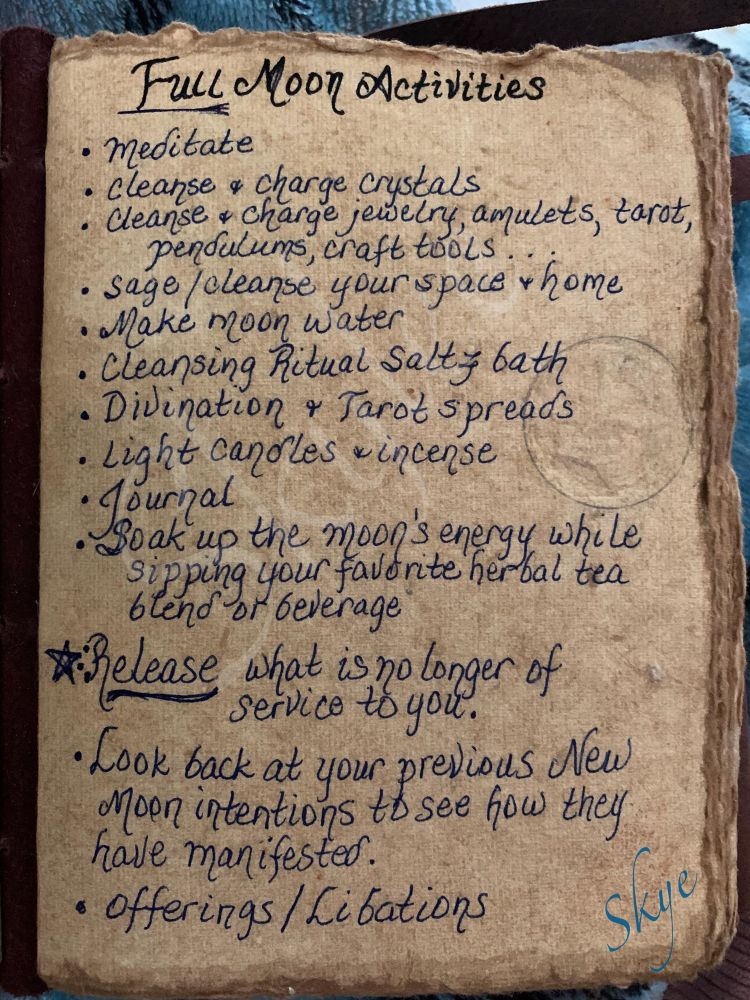 Full Moon Activities
• Meditate
• Cleanse & charge crystals
• Cleanse & charge jewelry, amulets, tarot,
pendulums, craft tools...
• Sage/cleanse your space & home
• Make moon water
• Cleansing Ritual Salts bath
• Divination & Tarot spreads
• Light candles & incense
• Journal
• Soak up the moon's energy while
sipping your favorite herbal tea
blend or beverage
☆: Release what is no longer of
service to you.
• Look back at your previous New
Moon intentions to see how they
have manifested.
• Offerings/Libations
Skye